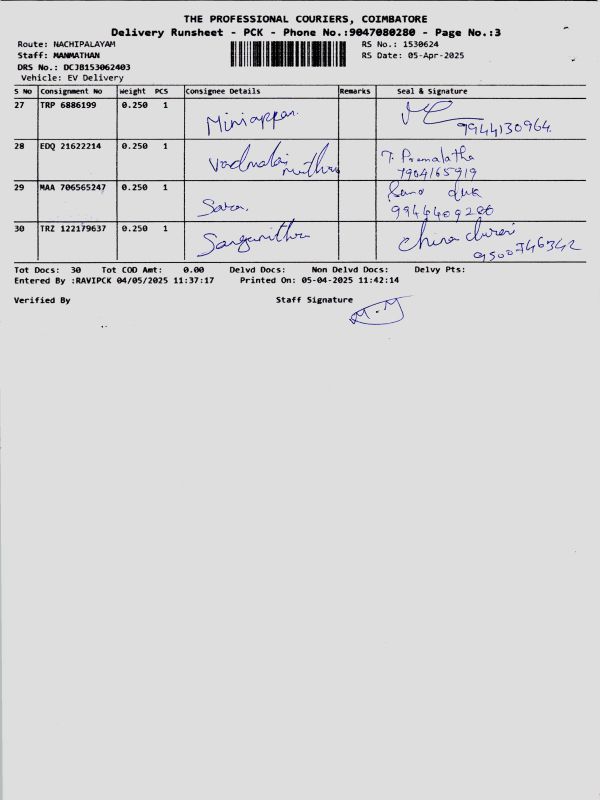 THE PROFESSIONAL COURIERS, COIMBATORE
Delivery Runsheet - PCK - Phone No.:9047080280 - Page No.:3
Route: NACHIPALAYAM RS No.: 1530624
Staff: MANMATHAN RS Date: 05-Apr-2025
DRS No.: DCJB153062403
Vehicle: EV Delivery
S No Consignment No Weight PCS Consignee Details Remarks Seal & Signature
27 TRP 6886199 0.250 1 Miniappan.
9944130964
28 EDQ 21622214 0.250 1 T. Premalatha
muthu 7904165919
29 MAA 706565247 0.250 1
Sara. 9944409286
30 TRZ 122179637 0.250 1
9500746342
Tot Docs: 30 Tot COD Amt: 0.00 Delvd Docs: Non Delvd Docs: Delvy Pts:
Entered By :RAVIPCK 04/05/2025 11:37:17 Printed On: 05-04-2025 11:42:14
Verified By Staff Signature